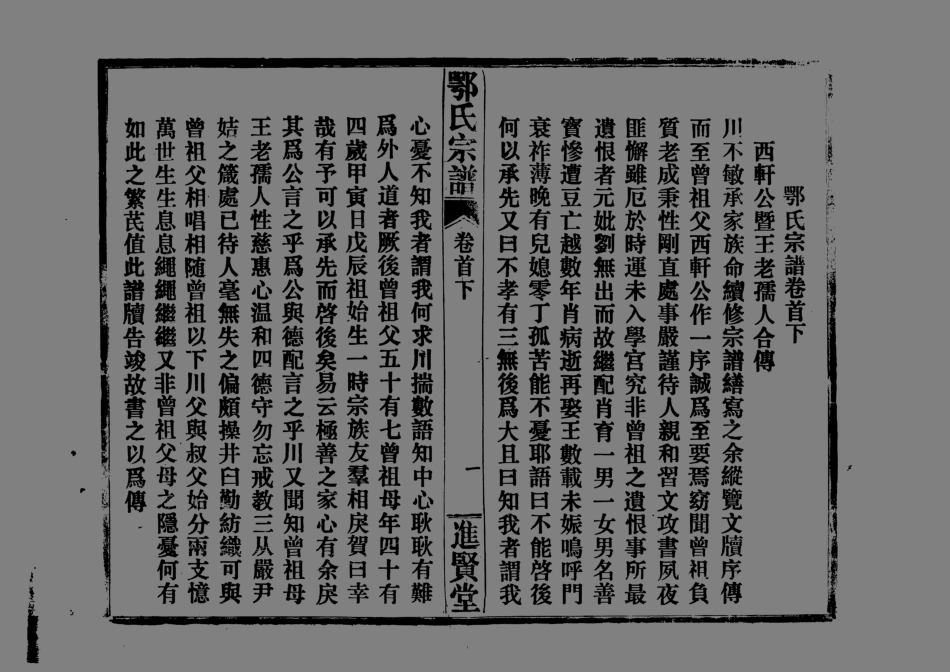 鄂氏宗譜卷首下
西軒公暨王老孺人合傳
川不敏承家族命續修宗譜繕寫之余縱覽文牘序傳
而至曾祖父西軒公作一序誠爲至要焉竊聞曾祖負
質老成秉性剛直處事嚴謹待人親和習文攻書夙夜
匪懈雖厄於時運未入學宮究非曾祖之遺恨事所最
遺恨者元妣劉無出而故繼配肖育一男一女男名善
寶慘遭豆亡越數年肖病逝再娶王數載未娠鳴呼門
衰祚薄晚有兒媳零丁孤苦能不憂耶語曰不能啓後
何以承先又曰不孝有三無後爲大且曰知我者謂我
鄂氏宗譜
卷首下
一
進賢堂
心憂不知我者謂我何求川揣數語知中心耿耿有難
爲外人道者厥後曾祖父五十有七曾祖母年四十有
四歲甲寅日戊辰祖始生一時宗族友羣相戾賀曰幸
哉有予可以承先而啓後矣易云極善之家心有余戾
其爲公言之乎爲公與德配言之乎川又聞知曾祖母
王老孺人性慈惠心温和四德守勿忘戒教三从嚴尹
姞之箴處已待人毫無失之偏頗操井臼勤紡織可與
曾祖父相唱相随曾祖以下川父與叔父始分兩支憶
萬世生生息息繩繩繼繼又非曾祖父母之隱憂何有
如此之繁芪值此譜牘告竣故書之以爲傳